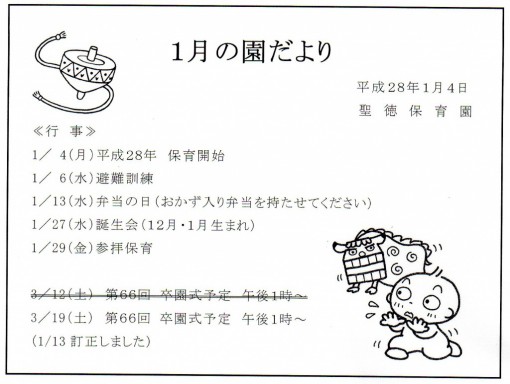 1月の園だより
平成28年1月4日
聖徳保育園
≪行 事≫
1/ 4(月)平成28年 保育開始
1/ 6(水)避難訓練
1/13(水)弁当の日(おかず入り弁当を持たせてください)
1/27(水)誕生会(12月・1月生まれ)
1/29(金)参拝保育
3/12(土) 第66回 卒園式予定 午後1時～
3/19(土) 第66回 卒園式予定 午後1時～
(1/13 訂正しました)